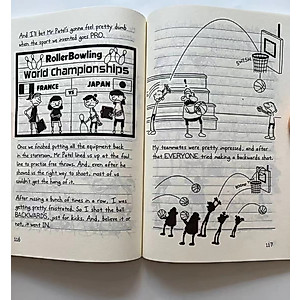 And I'll bet Mr. Patel's gonna feel pretty dumb
when the sport we invented goes PRO.
RollerBowling
World Championships
FRANCE VS JAPAN
Once we finished putting all the equipment back
in the storeroom, Mr. Patel lined us up at the foul
line to practise free throws. And, even after he
showed us the right way to shoot, most of us
couldn't get the hang of it.
After missing a bunch of times in a row, I was
getting pretty frustrated. So I shot the ball
BACKWARDS, just for kicks. And, believe it or
not, it went IN.
116
SWISH
My teammates were pretty impressed, and after
that EVERYONE tried making a backwards shot.
117